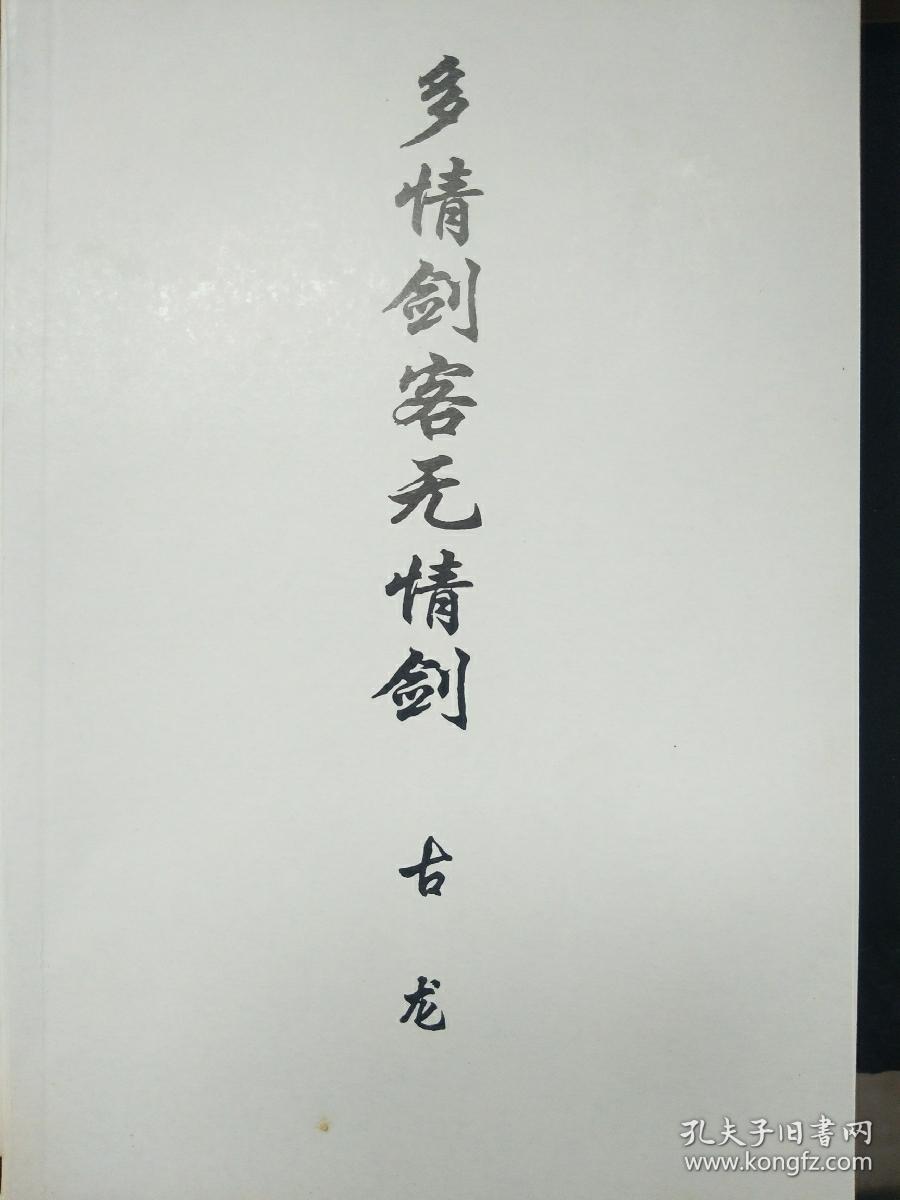 多情剑客无情剑
古龙
孔夫子旧書网
www.kongfz.com